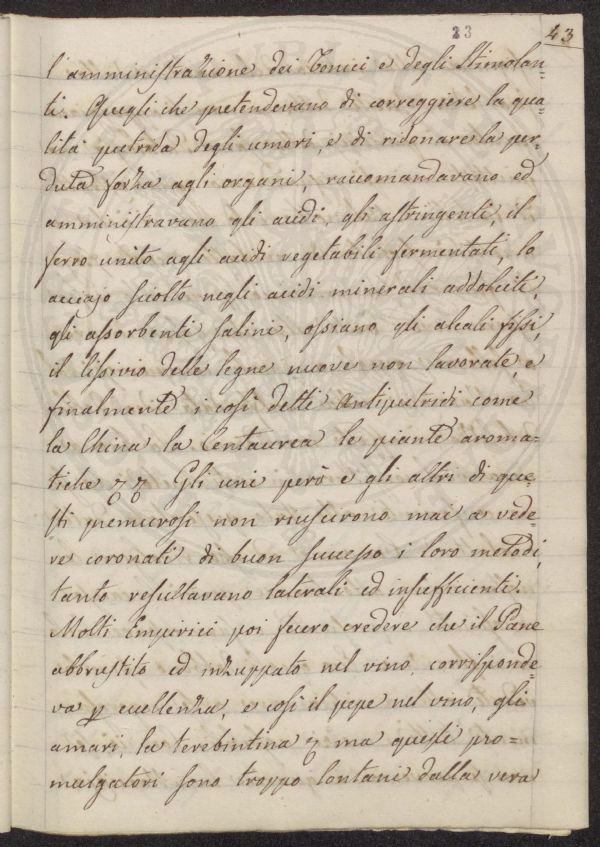 23 43
l'amministrazione dei Tonici e degli Stimolan-
ti. Quegli che pretendevano di correggiere la qua
lità putrida degli umori, e di ridonare la per-
duta forza agli organi, raccomandavano ed
amministravano gli acidi, gli astringenti, il
ferro unito agli acidi vegetabili fermentati, lo
acciajo sciolto negli acidi minerali addolciti,
gli assorbenti salini, ossiano gli alcali fissi,
il lissivio delle legne nuove non lavorate, e
finalmente i così detti Antiputridi come
la China la Centaurea le piante aroma=
tiche Gli uni però e gli altri di que=
sti premurosi non riuscirono mai a vede=
re coronati di buon successo i loro metodi,
tanto resultavano laterali ed insufficienti.
Molti Empirici poi fecero credere che il Pane
abbrustito ed inzuppato nel vino, corrisponde=
va p eccellenza, e così il pepe nel vino, gli
amari, la terebintina ma questi pro=
mulgatori sono troppo lontani dalla vera